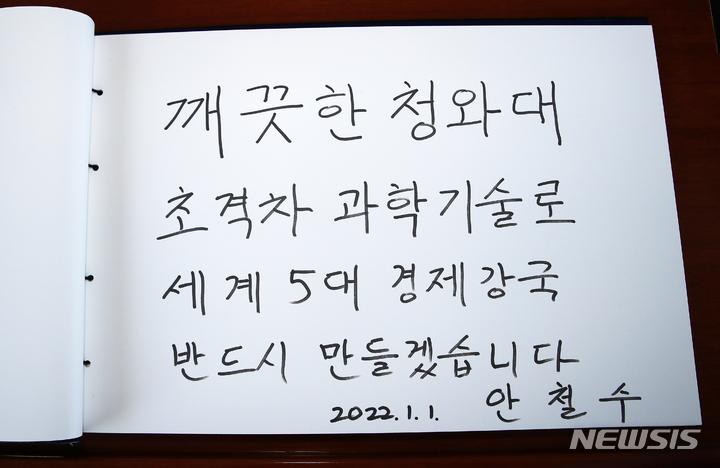 깨끗한 청와대
초격차 과학기술로
세계 5대 경제강국
반드시 만들겠습니다
2022.1.1. 안철수
NEWSIS